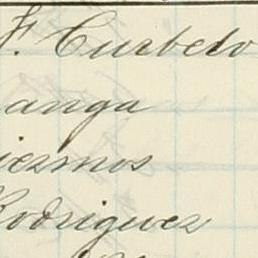 F. Curbelo
anga
iezmos
Rodriguez